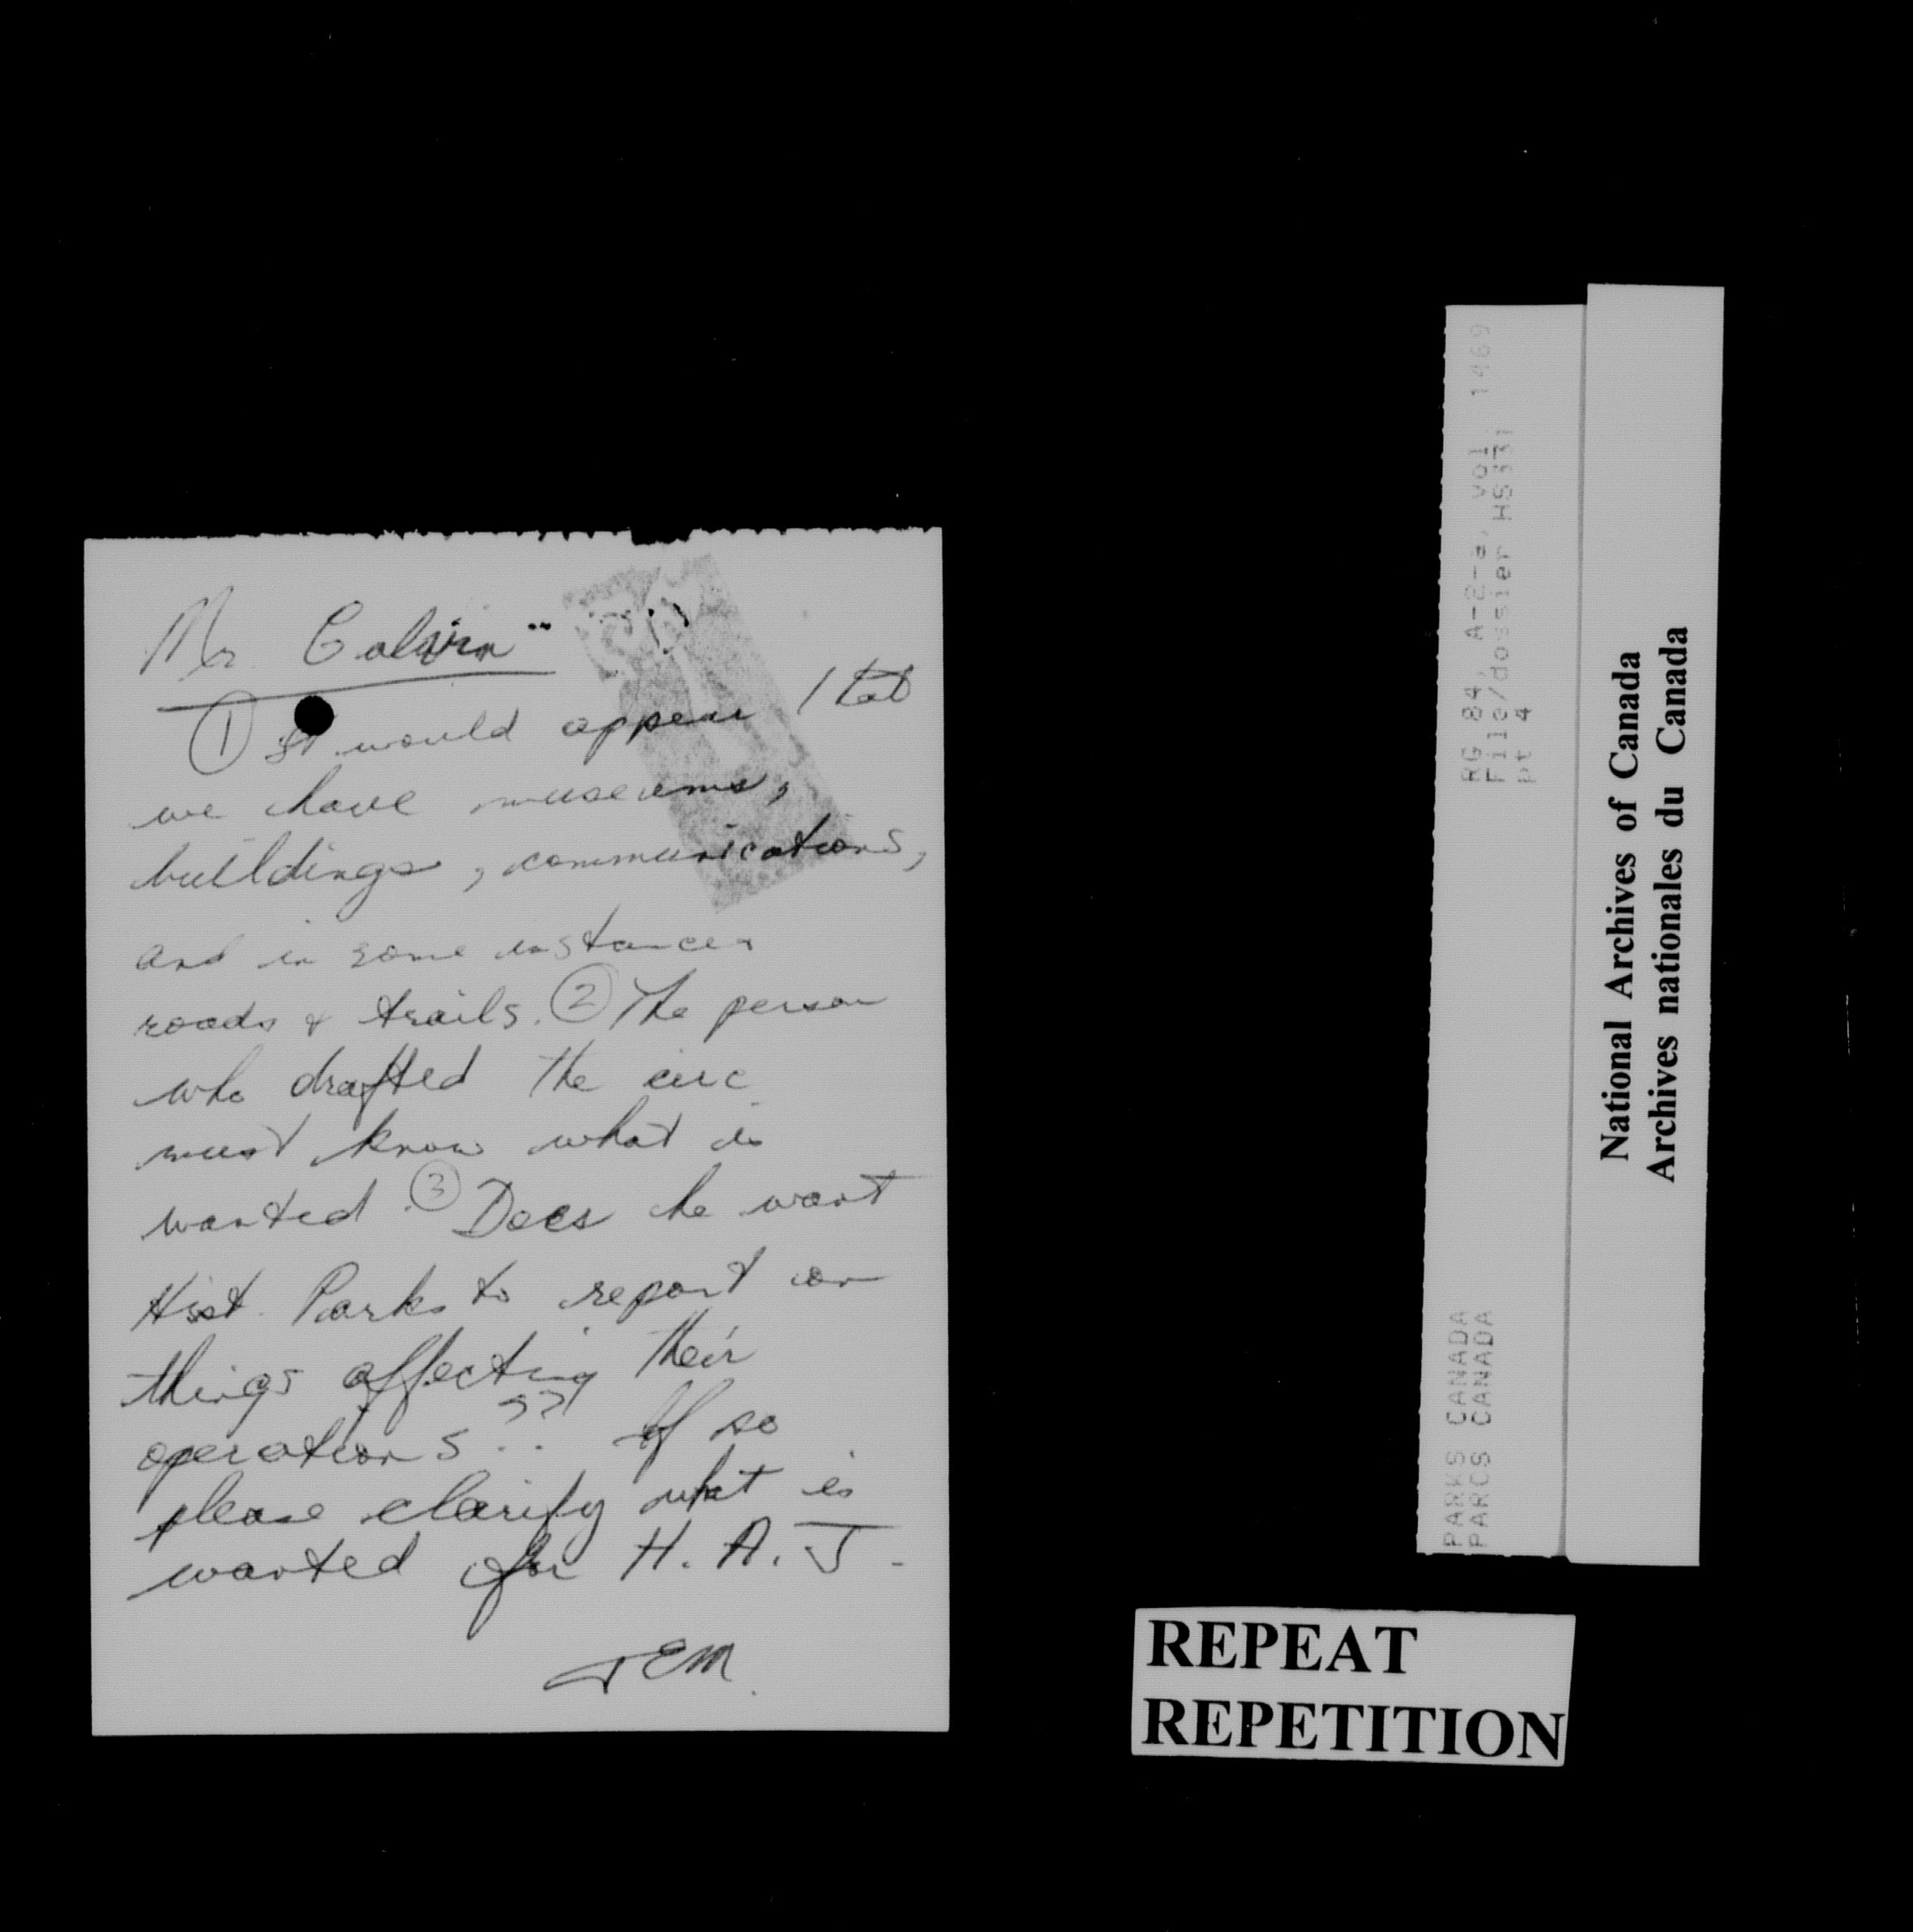 Mr. Colvin
① It would appear that
we have museums,
buildings, communications,
and in some instances
roads & trails. ② The person
who drafted the circ
must know what is
wanted. ③ Does he want
Hist. Parks to report on
things affecting their
operations?? If so
please clarify what is
wanted for H. A. J.
JEM.
RG 84, A-2-a, vol. 1469
File/dossier HS331
pt 4
PARKS CANADA
PARCS CANADA
National Archives of Canada
Archives nationales du Canada
REPEAT
REPETITION